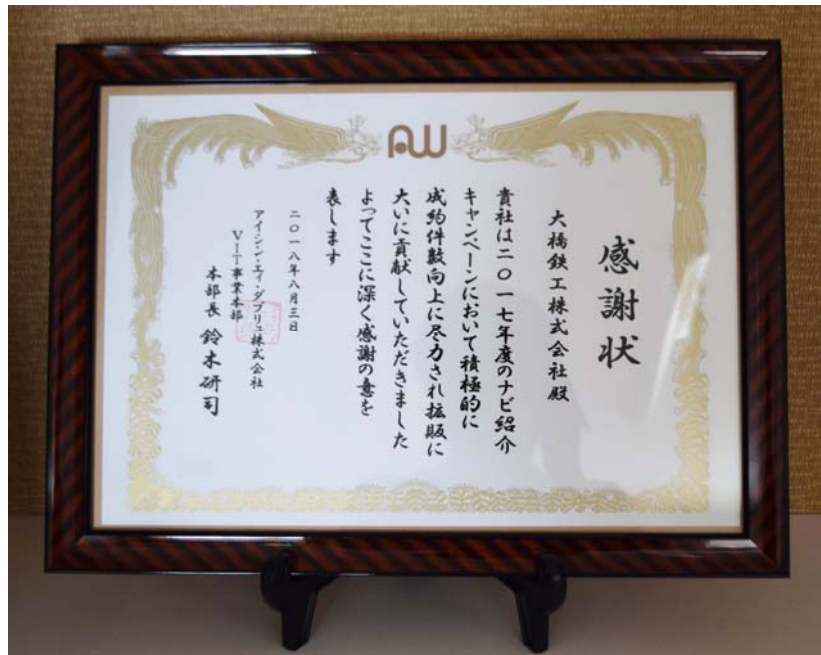 AW
感謝状
大橋鉄工株式会社殿
貴社は二〇一七年度のナビ紹介
キャンペーンにおいて積極的に
成約件数向上に尽力され拡販に
大いに貢献していただきました
よってここに深く感謝の意を
表します
二〇一八年八月三日
アイシン・エィ・ダブリュ株式会社
VIT事業本部
本部長 鈴木研司